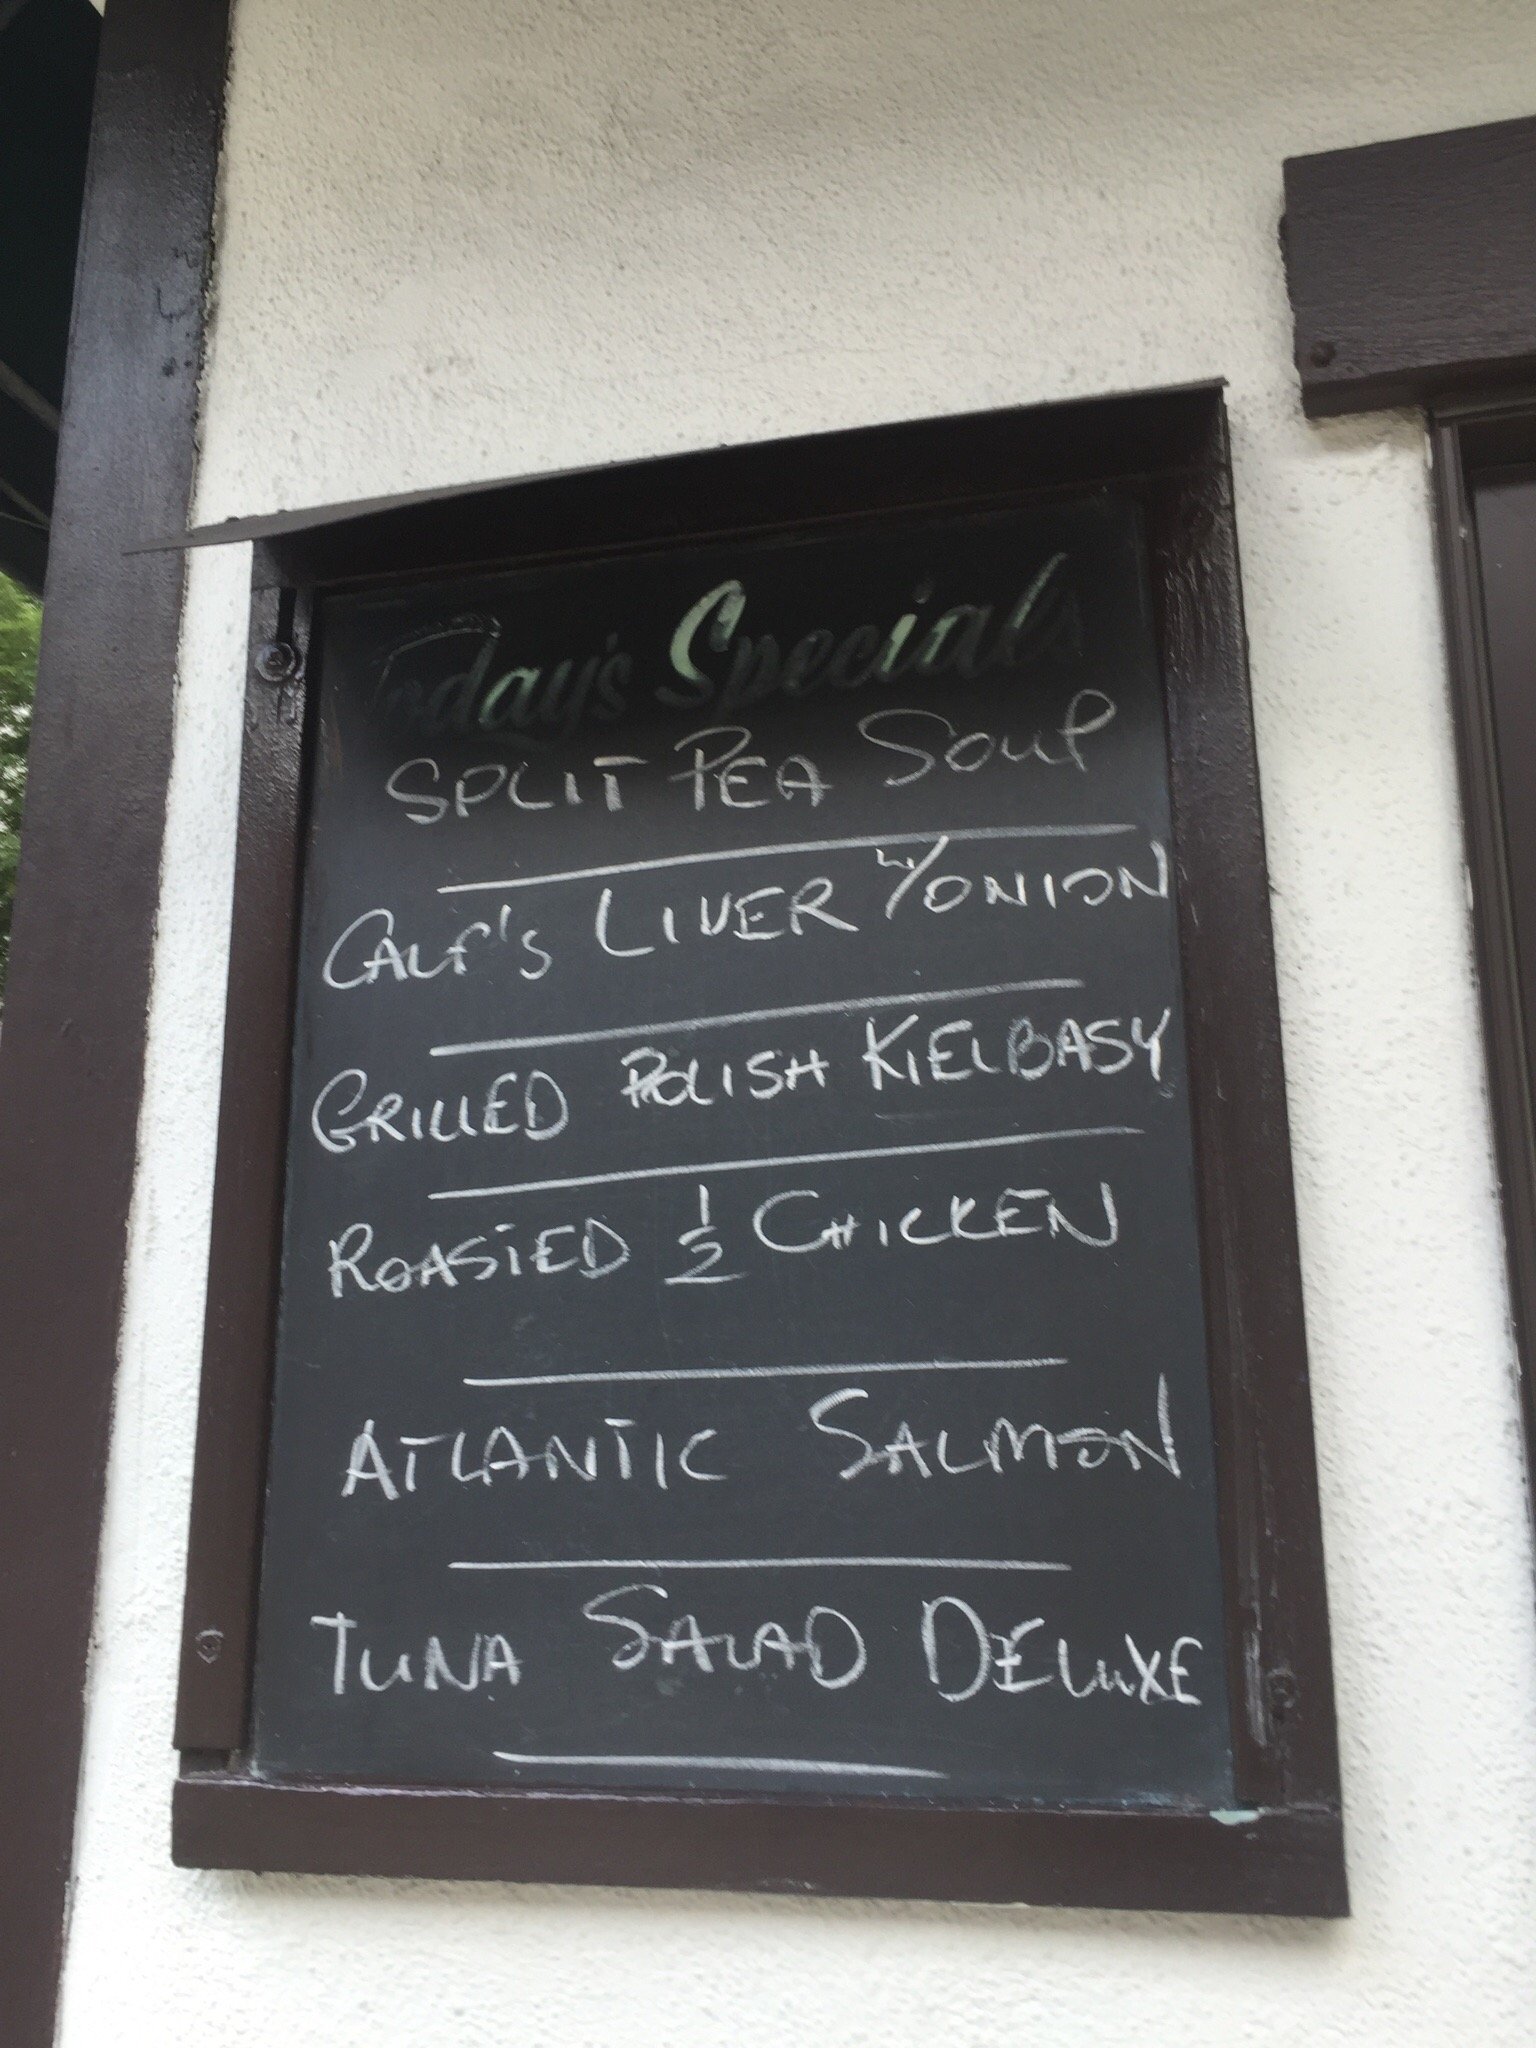 Today's Specials
SPLIT PEA SOUP
CALF'S LIVER W/ONION
GRILLED POLISH KIELBASY
ROASTED 1/2 CHICKEN
ATLANTIC SALMON
TUNA SALAD DELUXE